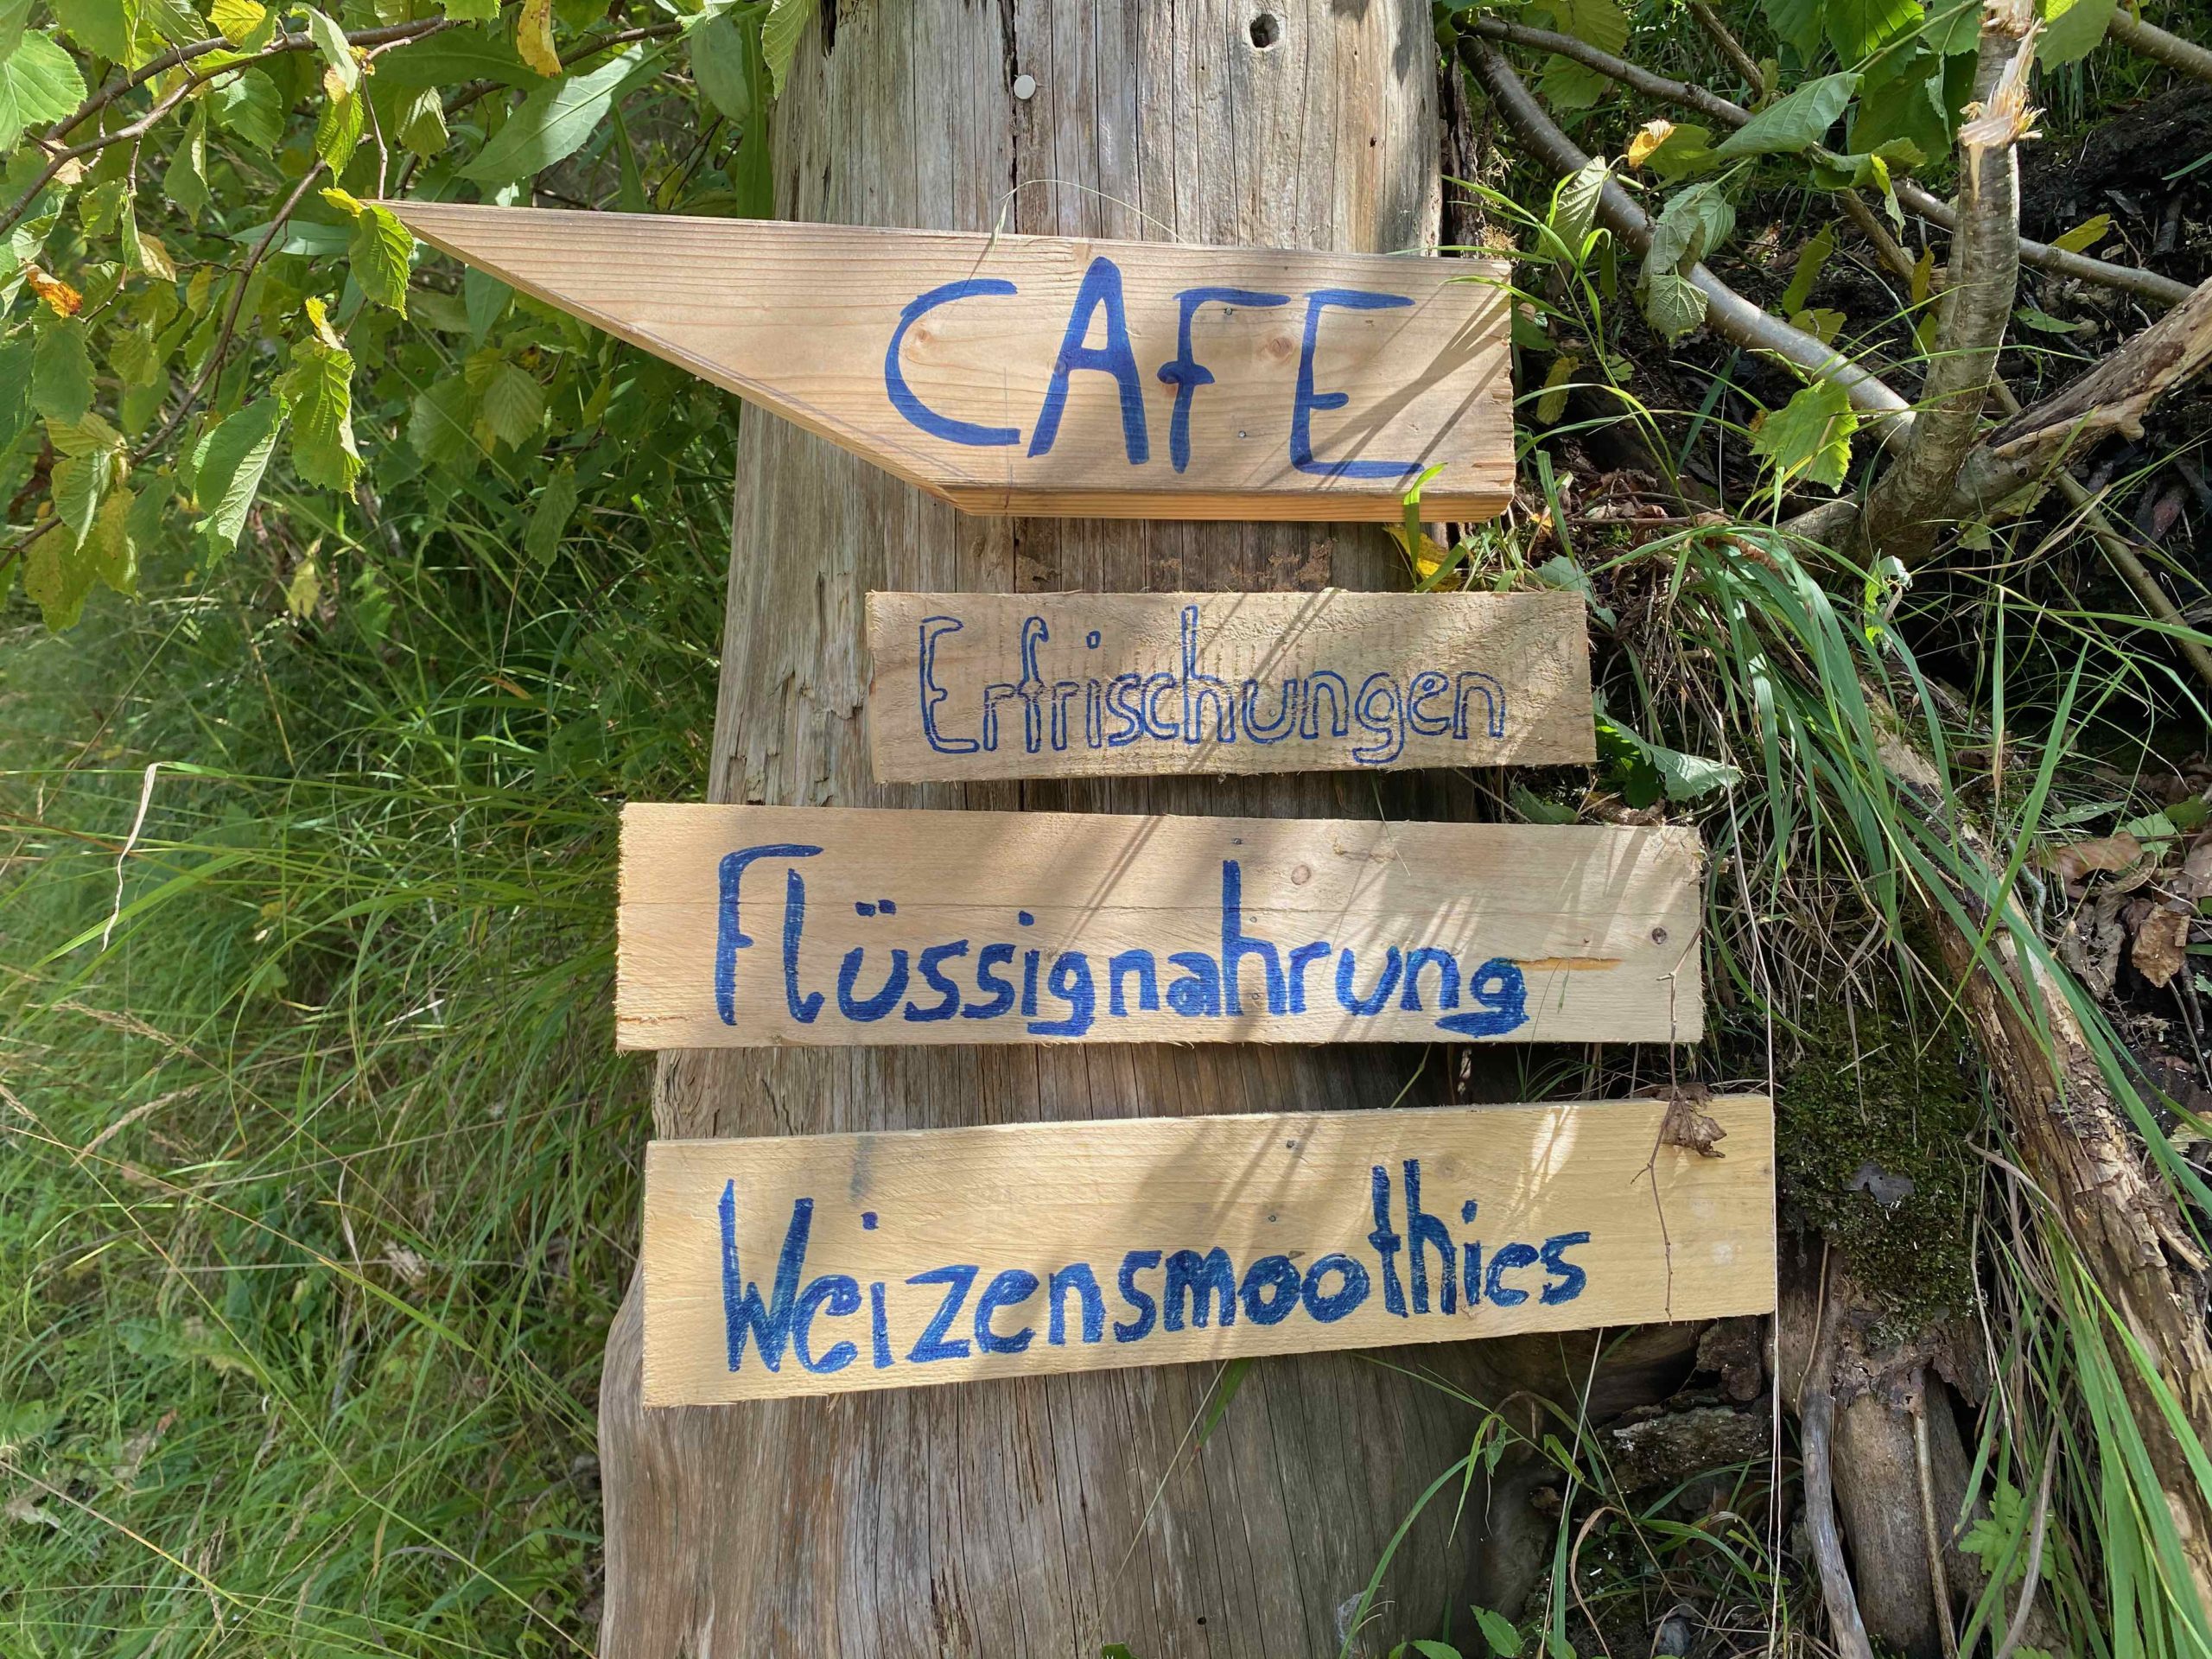 CAFE
Erfrischungen
Flüssignahrung
Weizensmoothies